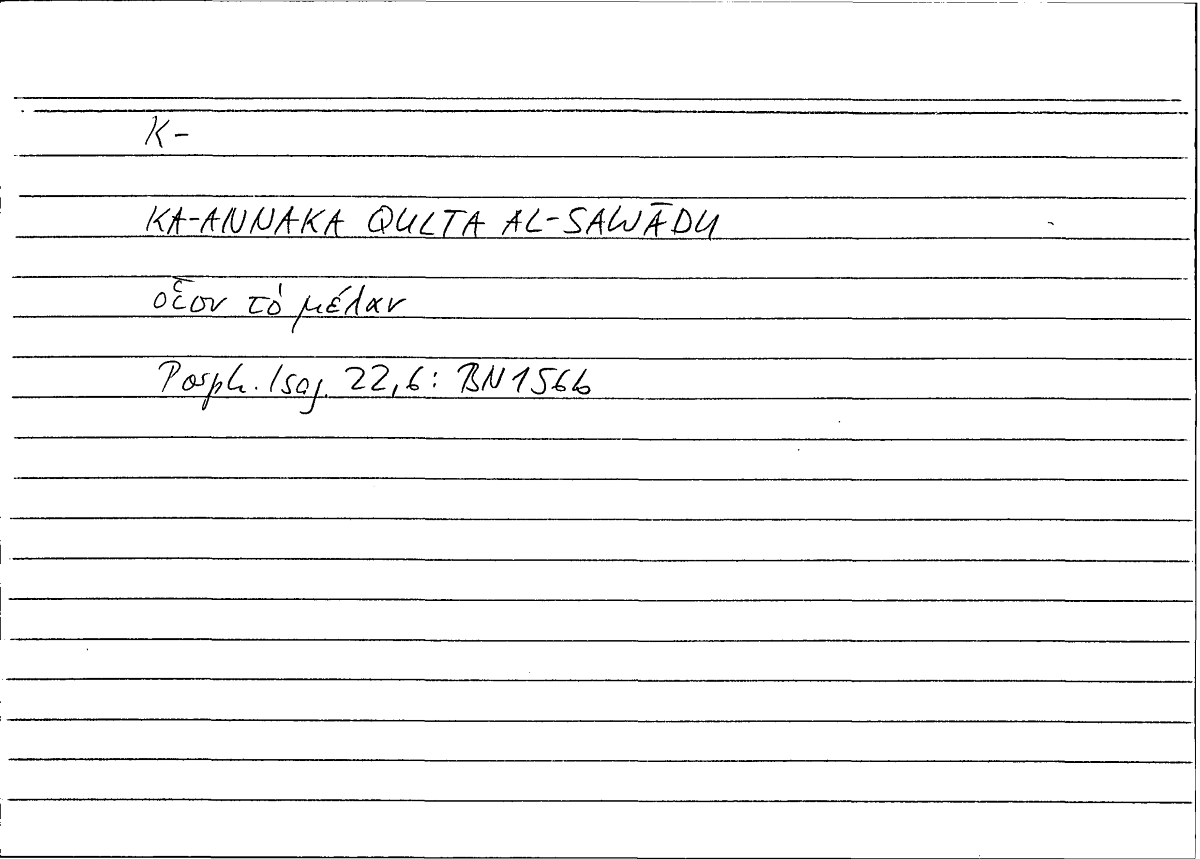 K-
KA-ANNAKA QULTA AL-SAWĀDU
οἷον τὸ μέλαν
Porph. Isag. 22,6: BN 156b